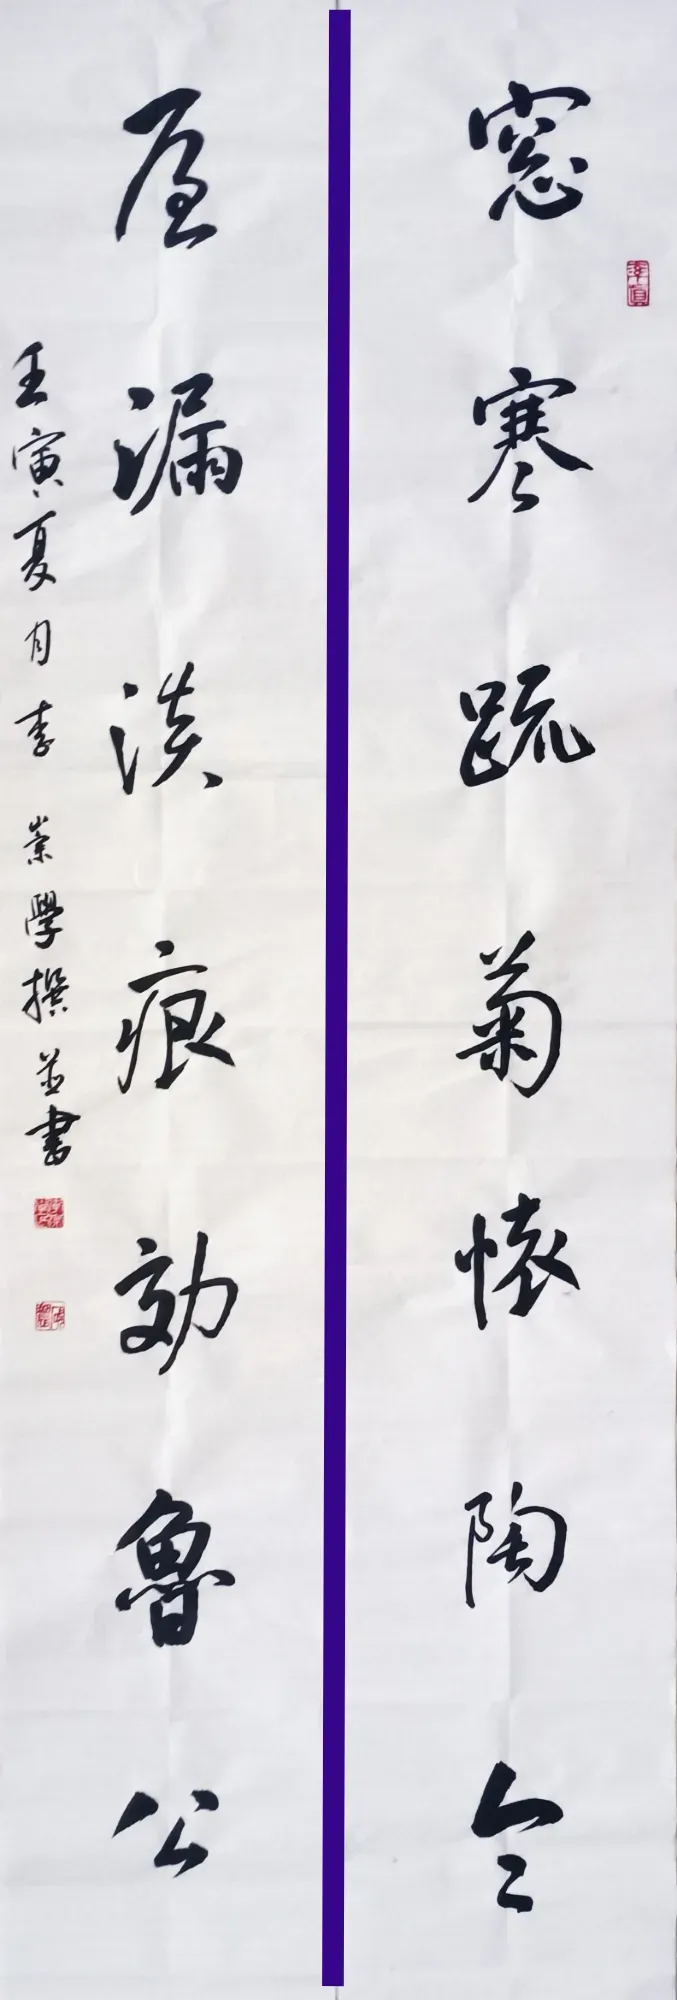 窓寒疏菊懷陶令
屋漏淡痕効魯公
壬寅夏月李崇學撰並書